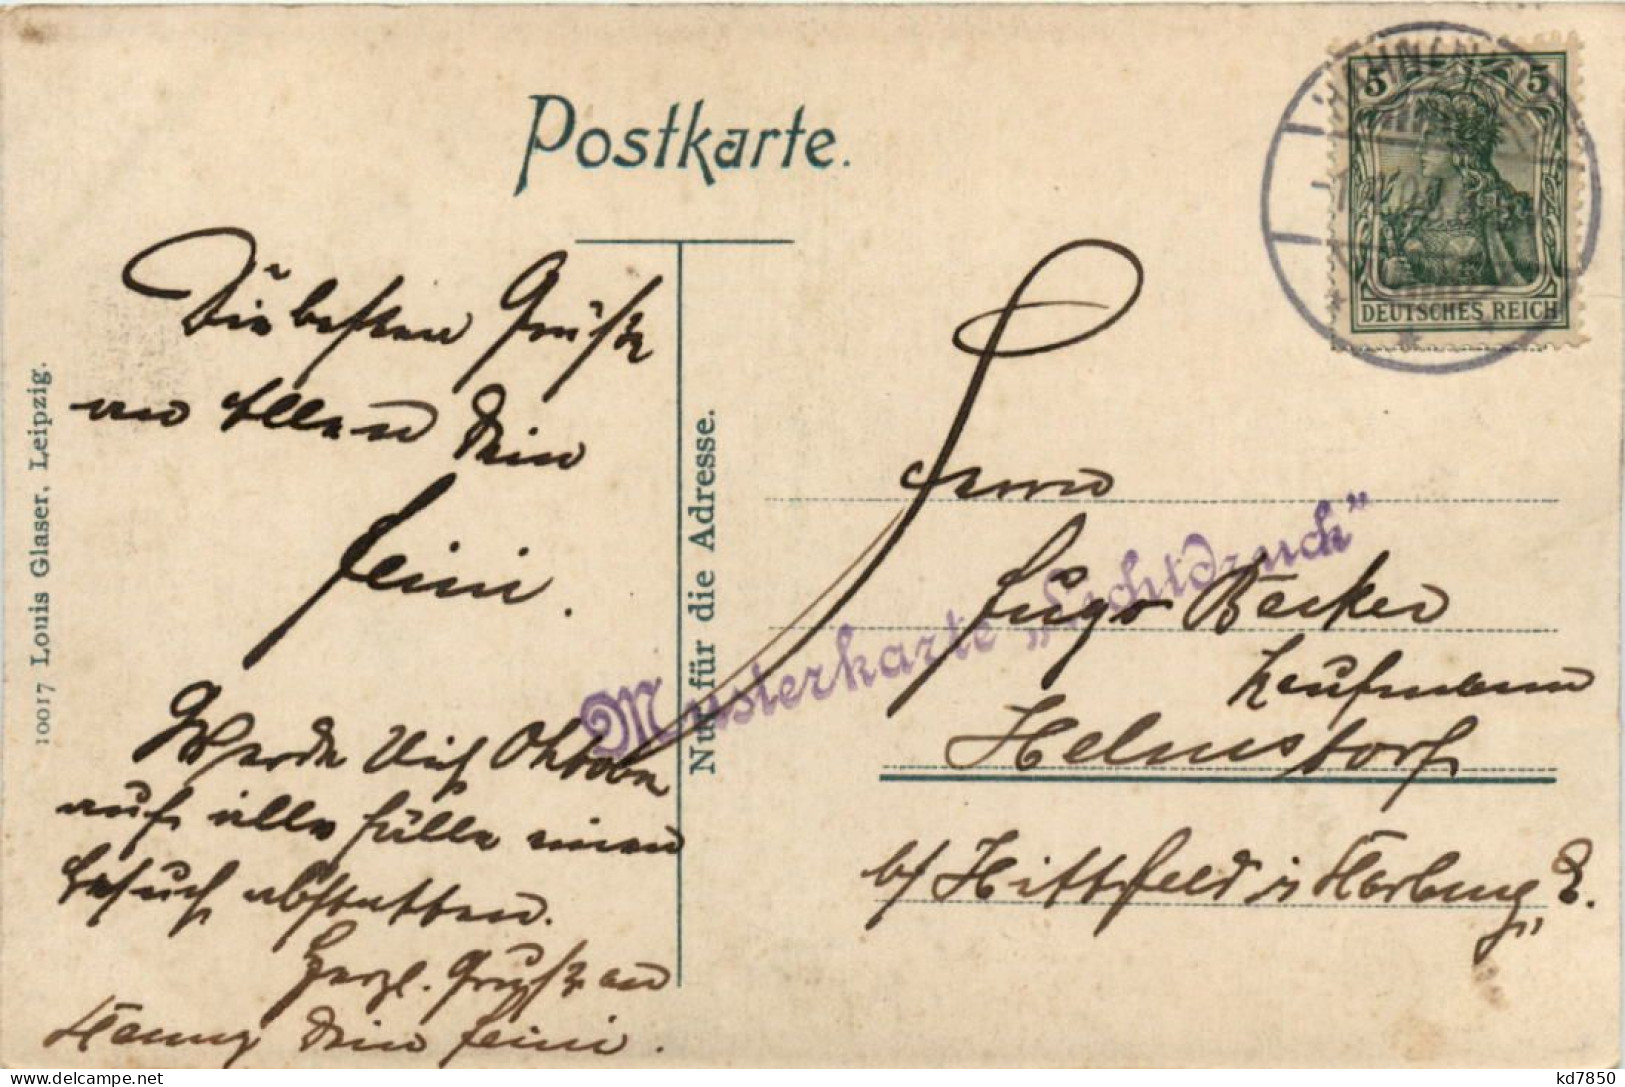 Postkarte.
5 5
DEUTSCHES REICH
Die besten Grüße
an Allen Dein
Heini.
Werde Dich Oktober
auf alle Fälle einen
Besuch abstatten.
Herzl. Grüße an
Hanny Dein Heini.
Nur für die Adresse.
10017 Louis Glaser, Leipzig.
Musterkarte „Lichtdruck"
Herrn
Hugo Becker
Kaufmann
Helmstorf
b/ Hittfeld i/ Harburg, E.
kd7850